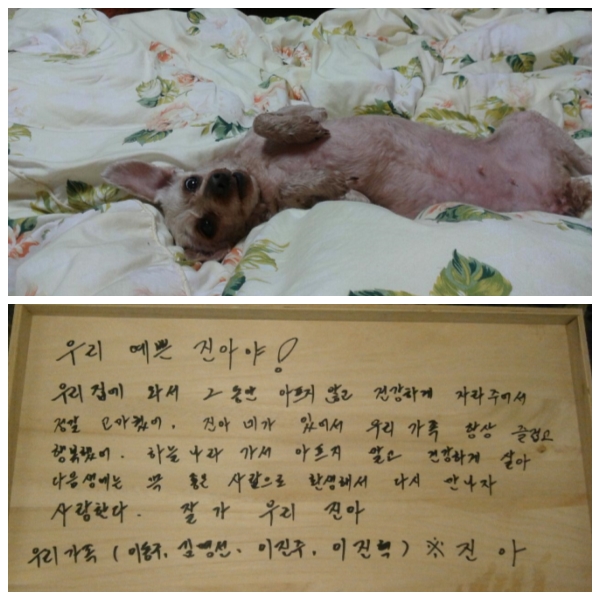 우리 예쁜 진아야!
우리집에 와서 그 동안 아프지 않고 건강하게 자라주어서
정말 고마웠어. 진아 네가 있어서 우리 가족 항상 즐겁고
행복했어. 하늘나라 가서 아프지 말고 건강하게 살아
다음생에는 꼭 좋은 사람으로 환생해서 다시 만나자
사랑한다. 잘가 우리 진아
우리가족 ( 김명선. 이진주. 이진혁 ) ※ 진 아